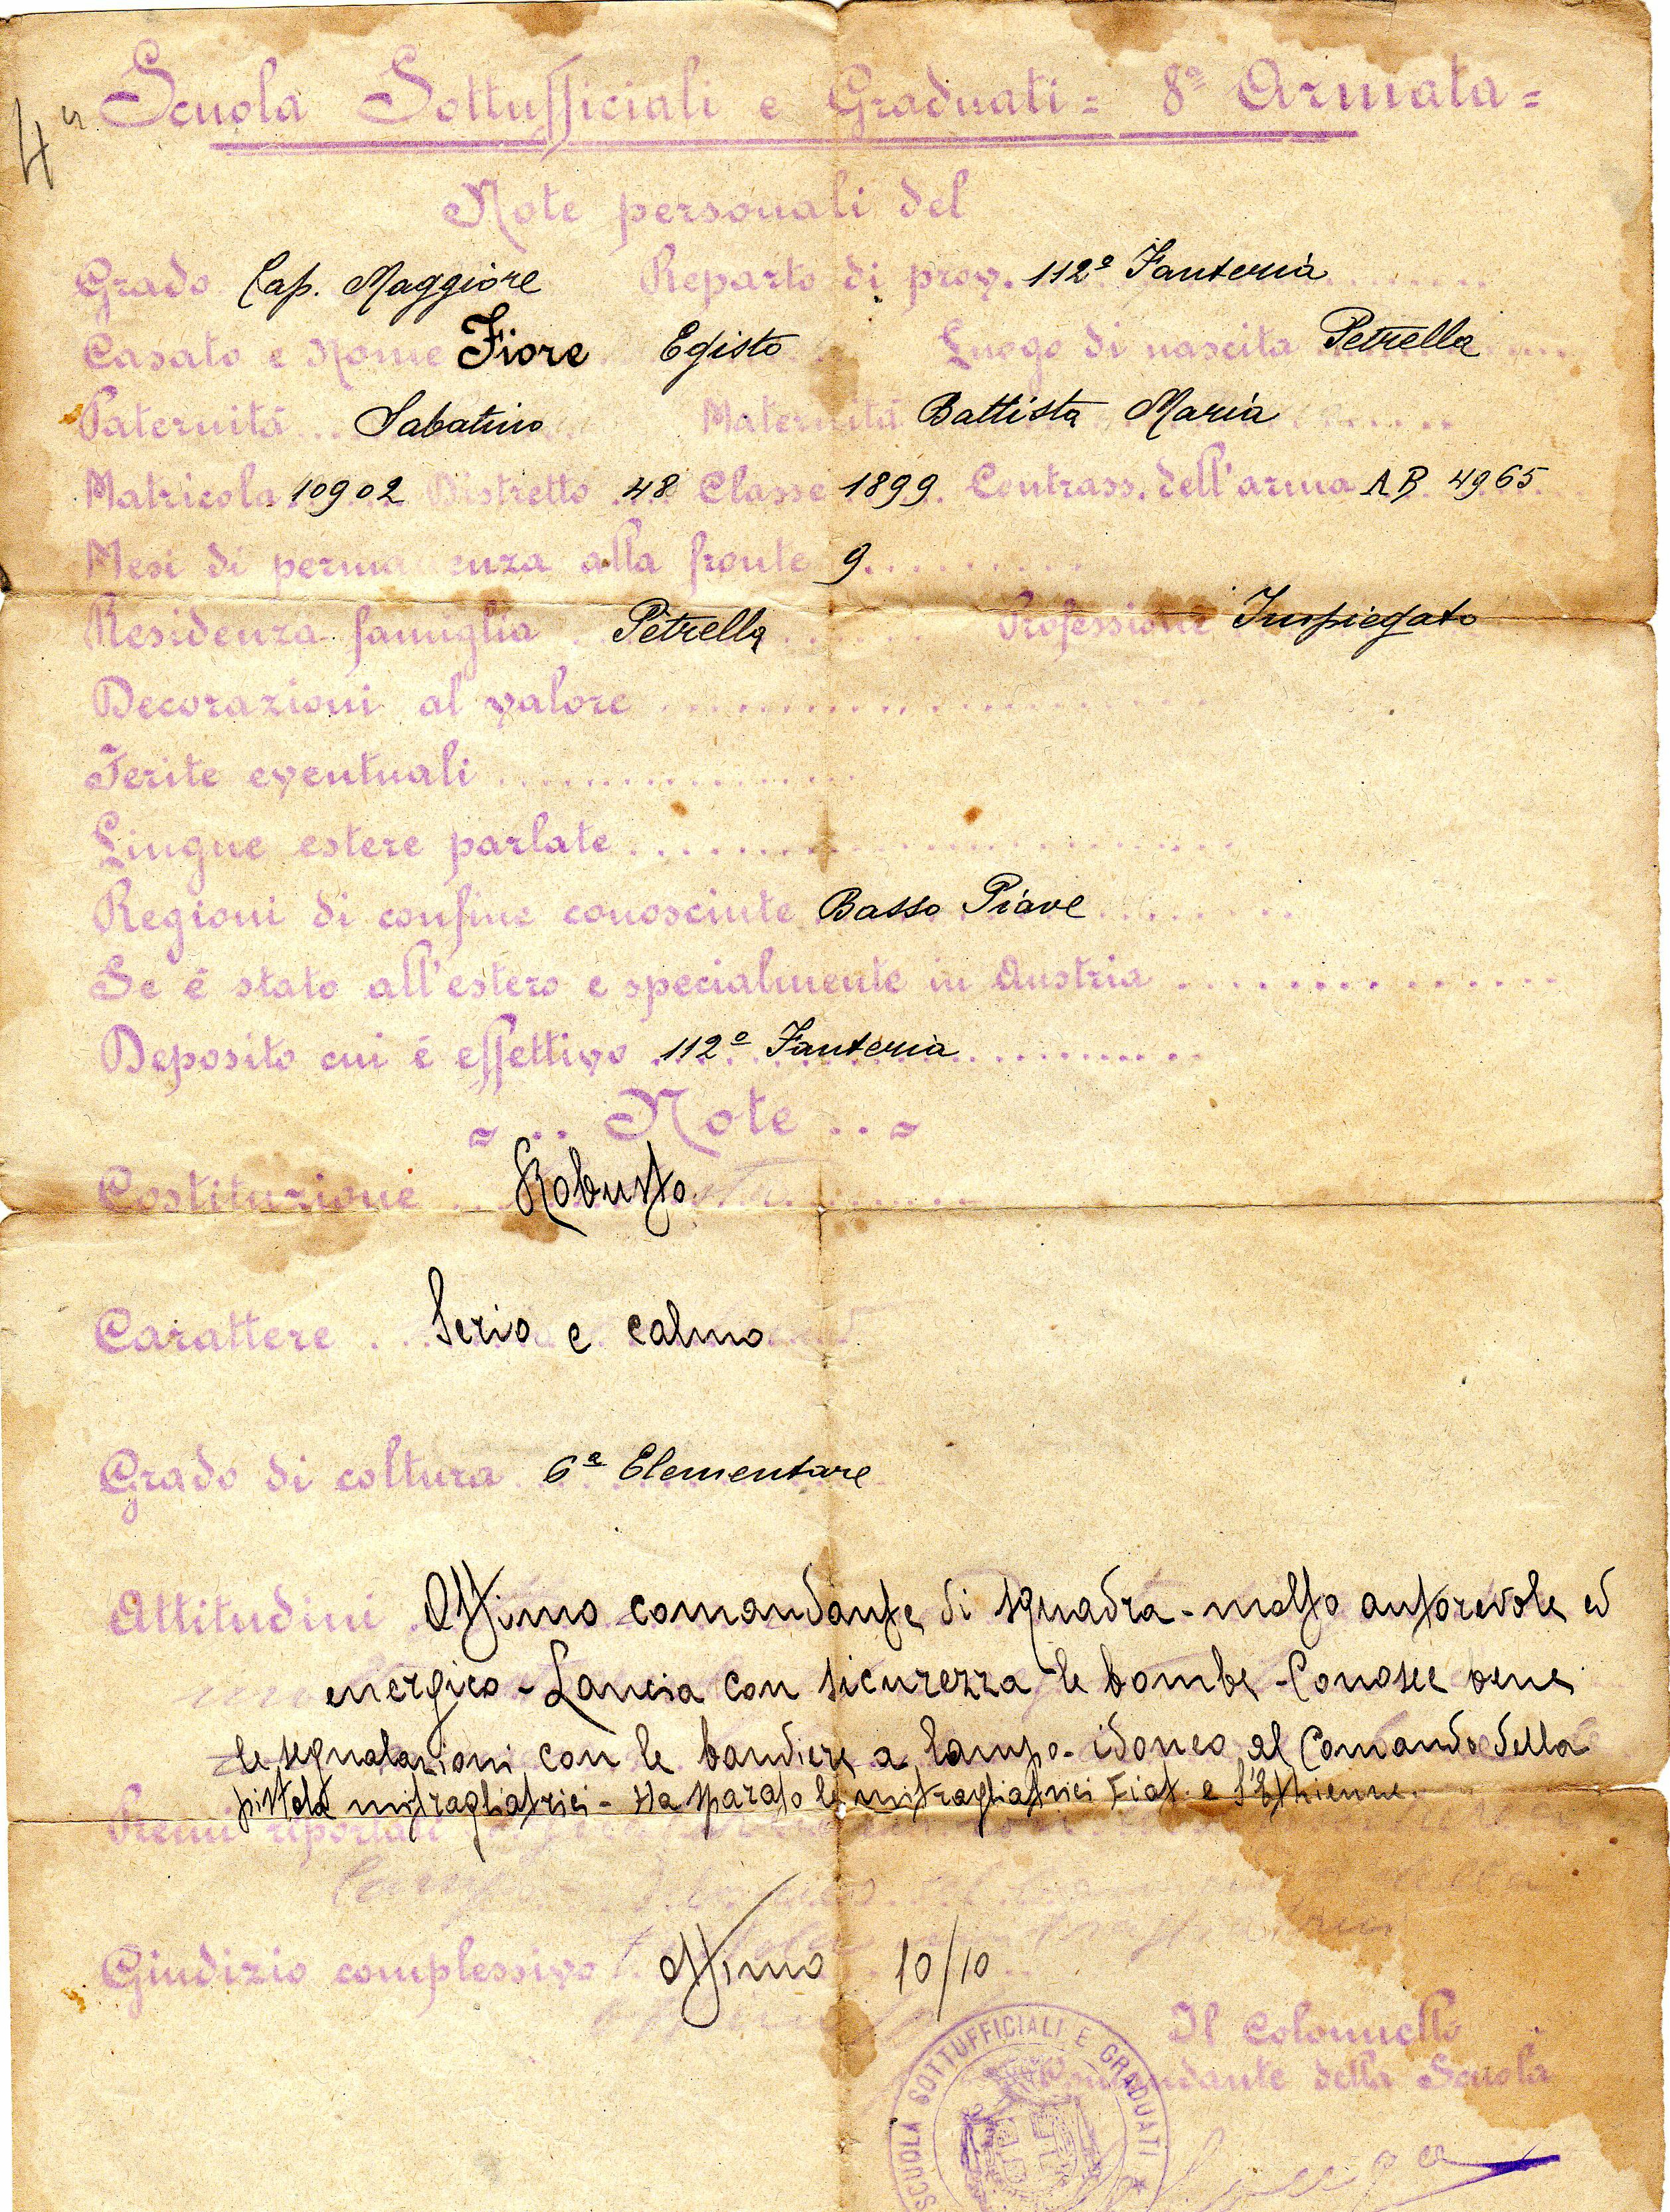 4ª
Scuola Sottufficiali e Graduati = 8ª Armata =
Note personali del
Grado Cap. Maggiore Reparto di prov. 112º Fanteria
Casato e Nome Fiore Egisto Luogo di nascita Petrella
Paternitá Sabatino Maternitá Battista Maria
Matricola 10902 Distretto 48 Classe 1899 Contrass. dell'arma AB 4965
Mesi di permanenza alla fronte 9
Residenza famiglia Petrella Professione Impiegato
Decorazioni al valore
Ferite eventuali
Lingue estere parlate
Regioni di confine conosciute Basso Piave
Se é stato all'estero e specialmente in Austria
Deposito cui é effettivo 112º Fanteria
Note
Costituzione Robusto
Carattere Serio e calmo
Grado di coltura 6ª Elementare
Attitudini Ottimo comandante di squadra - molto autorevole ed
energico - Lancia con sicurezza le bombe - Conosce bene
le segnalazioni con le bandiere a lampo - idoneo al Comando della
pistola mitragliatrici - Ha sparato le mitragliatrici Fiat e S. Ethienne.
Premi riportati
Giudizio complessivo ottimo 10/10
Il Colonnello
Comandante della Scuola
SCUOLA SOTTUFFICIALI E GRADUATI